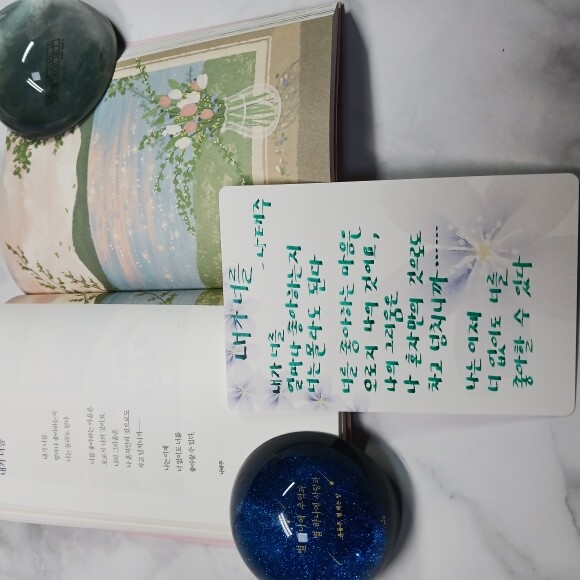 내가 너를
- 나태주
내가 너를
얼마나 좋아하는지
너는 몰라도 된다
너를 좋아하는 마음은
오로지 나의 것이요,
나의 그리움은
나 혼자만의 것으로도
차고 넘치니까……
나는 이제
너 없이도 너를
좋아할 수 있다
내가 너를
내가 너를
얼마나 좋아하는지
너는 몰라도 된다
너를 좋아하는 마음은
오로지 나의 것이요,
나의 그리움은
나 혼자만의 것으로도
차고 넘치니까……
나는 이제
너 없이도 너를
좋아할 수 있다.
나태주
별 하나에 추억과
별 하나에 사랑과
윤동주, 별 헤는 밤